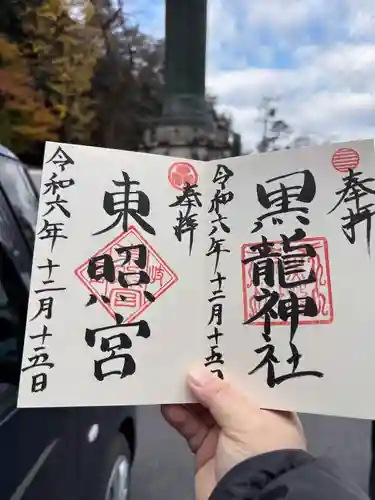 奉拝
黒龍神社
令和六年十二月十五日
奉拝
東照宮
令和六年十二月十五日